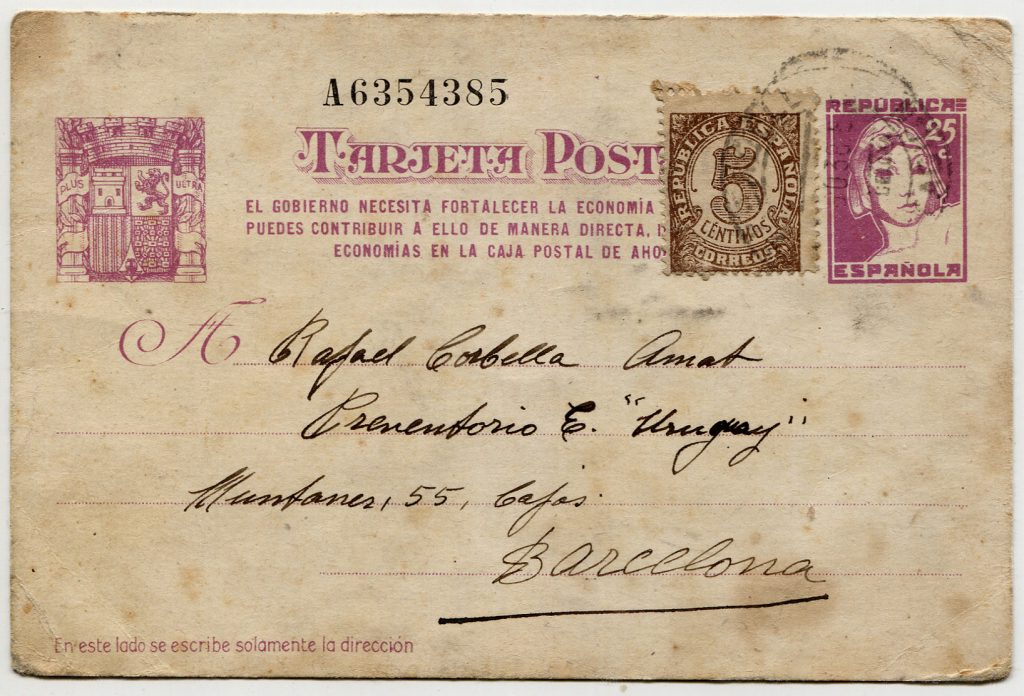 A6354385
TARJETA POST
EL GOBIERNO NECESITA FORTALECER LA ECONOMÍA
PUEDES CONTRIBUIR A ELLO DE MANERA DIRECTA,
ECONOMÍAS EN LA CAJA POSTAL DE AHO
PLUS ULTRA
REPUBLICA ESPAÑOLA
5
CENTIMOS
CORREOS
REPUBLICA
25 c
ESPAÑOLA
A Rafael Corbella Amat
Preventorio E. "Uruguay"
Muntaner, 55, bajos
Barcelona
En este lado se escribe solamente la dirección